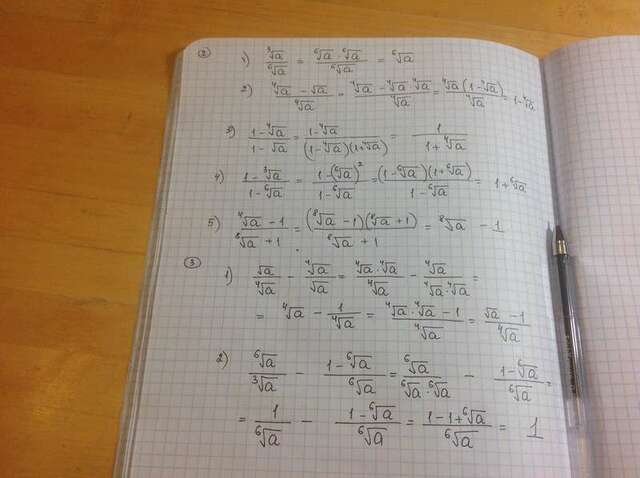 ② 1) ∛a / ⁶√a = (⁶√a · ⁶√a) / ⁶√a = ⁶√a
2) (⁴√a − √a) / ⁴√a = (⁴√a − ⁴√a · ⁴√a) / ⁴√a = ⁴√a(1 − ⁴√a) / ⁴√a = 1 − ⁴√a
3) (1 − ⁴√a) / (1 − √a) = (1 − ⁴√a) / ((1 − ⁴√a)(1 + ⁴√a)) = 1 / (1 + ⁴√a)
4) (1 − ∛a) / (1 − ⁶√a) = (1 − (⁶√a)²) / (1 − ⁶√a) = (1 − ⁶√a)(1 + ⁶√a) / (1 − ⁶√a) = 1 + ⁶√a
5) (⁴√a − 1) / (⁸√a + 1) = (⁸√a − 1)(⁸√a + 1) / (⁸√a + 1) = ⁸√a − 1
③ 1) √a / ⁴√a − ⁴√a / √a = (⁴√a · ⁴√a) / ⁴√a − ⁴√a / (⁴√a · ⁴√a) =
= ⁴√a − 1 / ⁴√a = (⁴√a · ⁴√a − 1) / ⁴√a = (√a − 1) / ⁴√a
2) ⁶√a / ³√a − (1 − ⁶√a) / ⁶√a = ⁶√a / (⁶√a · ⁶√a) − (1 − ⁶√a) / ⁶√a =
= 1 / ⁶√a − (1 − ⁶√a) / ⁶√a = (1 − 1 + ⁶√a) / ⁶√a = 1